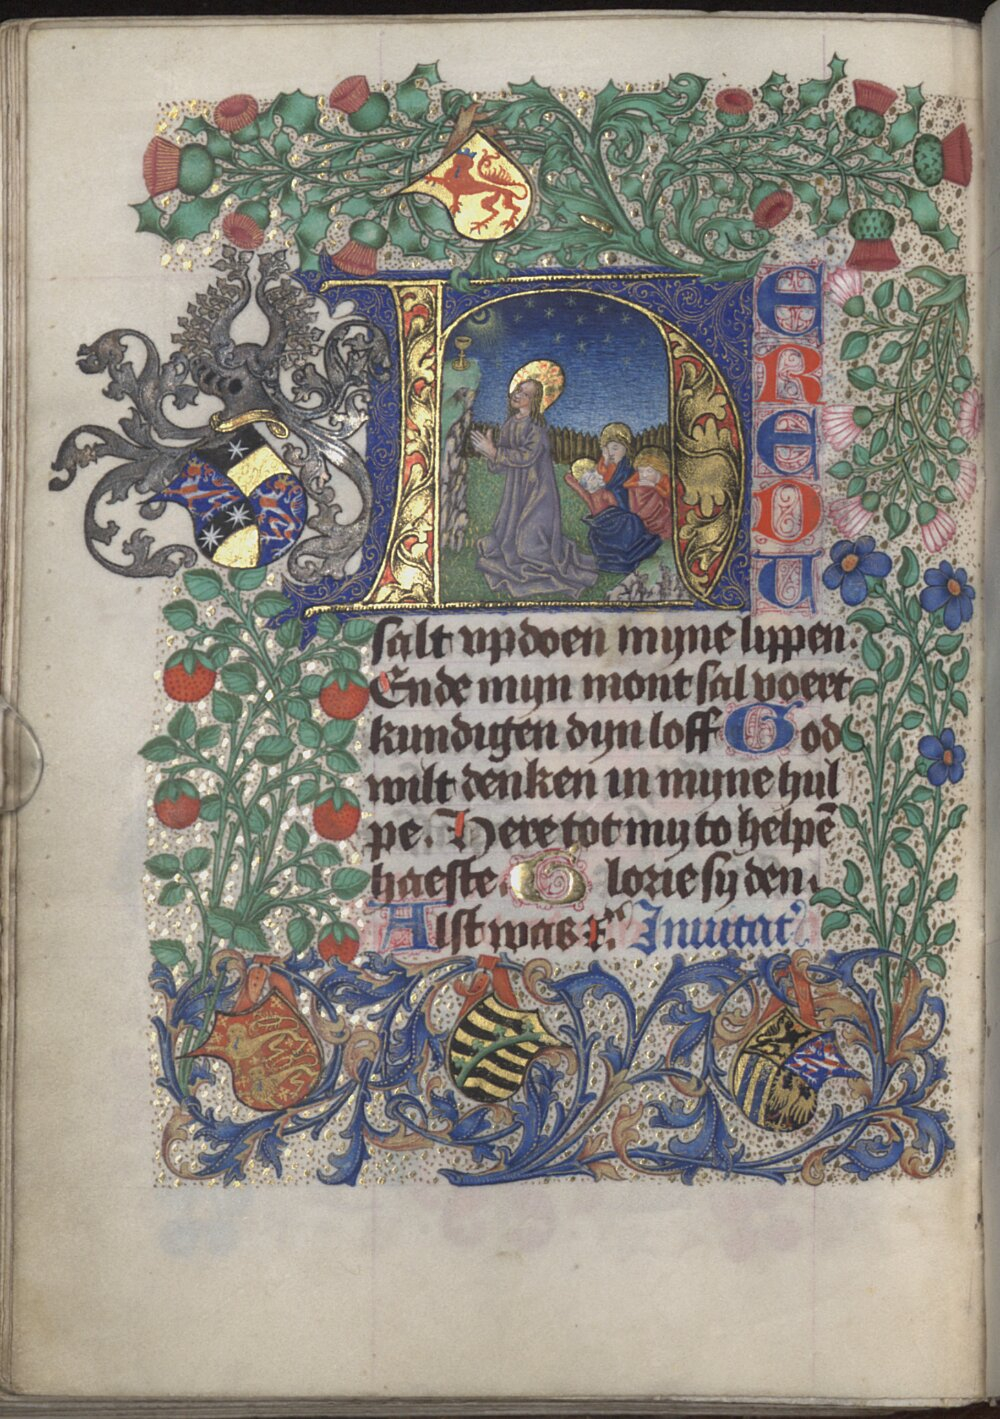 HEREDU
salt vpdoen myne lippen.
Ende mijn mont sal voert
kundigen dijn loff God
wilt denken in myne hul
pe. Here tot my to helpē
haeste. Glorie sy den.
Alst was